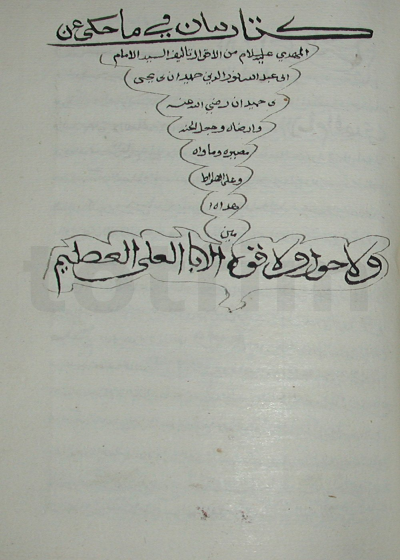 كتاب بيان في ما حكي عن
المهدي عليه السلام من الاقوال تأليف السيد الامام
ابي عبد الله نور الدين حميدان بن يحيى
بن حميدان رضي الله عنه
وارضاه وجعل الجنة
مصيره وماواه
وعلى الصراط
هداه ا
مين
ولا حول ولا قوة الا بالله العلي العظيم